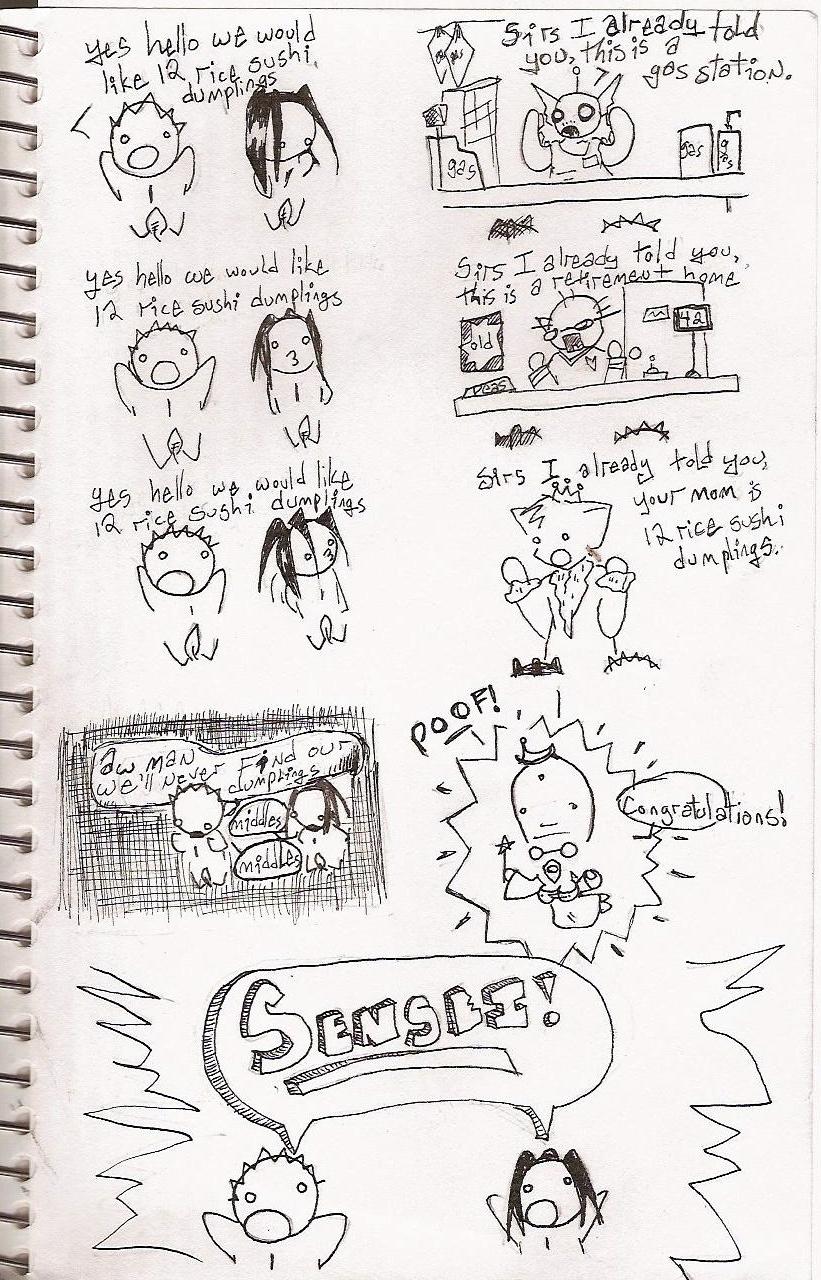 yes hello we would
like 12 rice sushi
dumplings
Sirs I already told
you, this is a
gas station.
gas
gas
gas
gas
yes hello we would like
12 rice sushi dumplings
Sirs I already told you,
this is a retirement home
old
42
peas
yes hello we would like
12 rice sushi dumplings
Sirs I already told you,
your mom is
12 rice sushi
dumplings.
aw man
we'll never find our
dumplings
middles
middles
POOF!
Congratulations!
SENSEI!